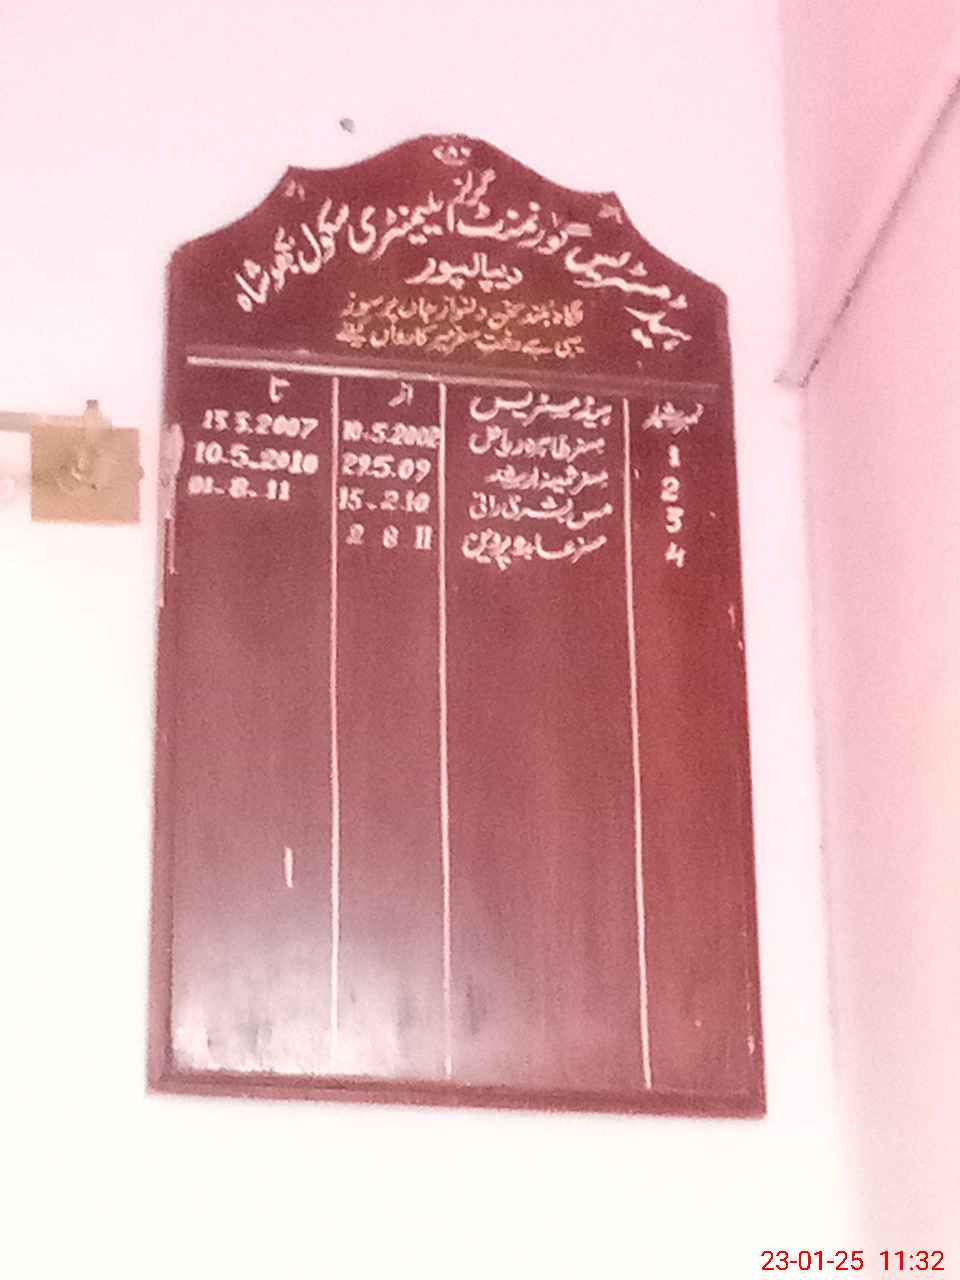 ۷۸۶
ہیڈ مسٹریس گورنمنٹ گرلز ایلیمنٹری سکول بھٹو شاہ
دیپالپور
نگاہ بلند سخن دلنواز جاں پرسوز
یہی ہے رخت سفر میر کارواں کیلئے
نمبر شمار ہیڈ مسٹریس از تا
1 مسز طاہرہ ریاض 10.5.2002 15.5.2007
2 مسز ثمینہ ارشد 29.5.09 10-5-2010
3 مس بشریٰ رانی 15-2-10 01-8-11
4 مسز عابدہ پروین 2 8 11
23-01-25 11:32